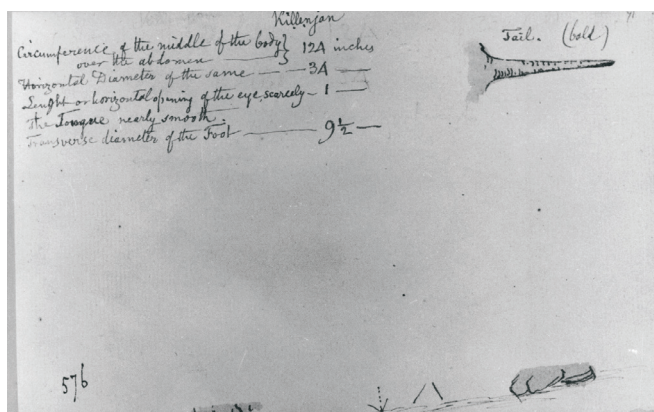 Killenjan
Circumference of the middle of the body}
over the abdomen } 124 inches
Horizontal Diameter of the same — 34 —
Lenght or horizontal opening of the eye, scarcely – 1 —
The Tongue nearly smooth.
Transverse diameter of the Foot — 9 1/2 —
Tail. (bold)
576